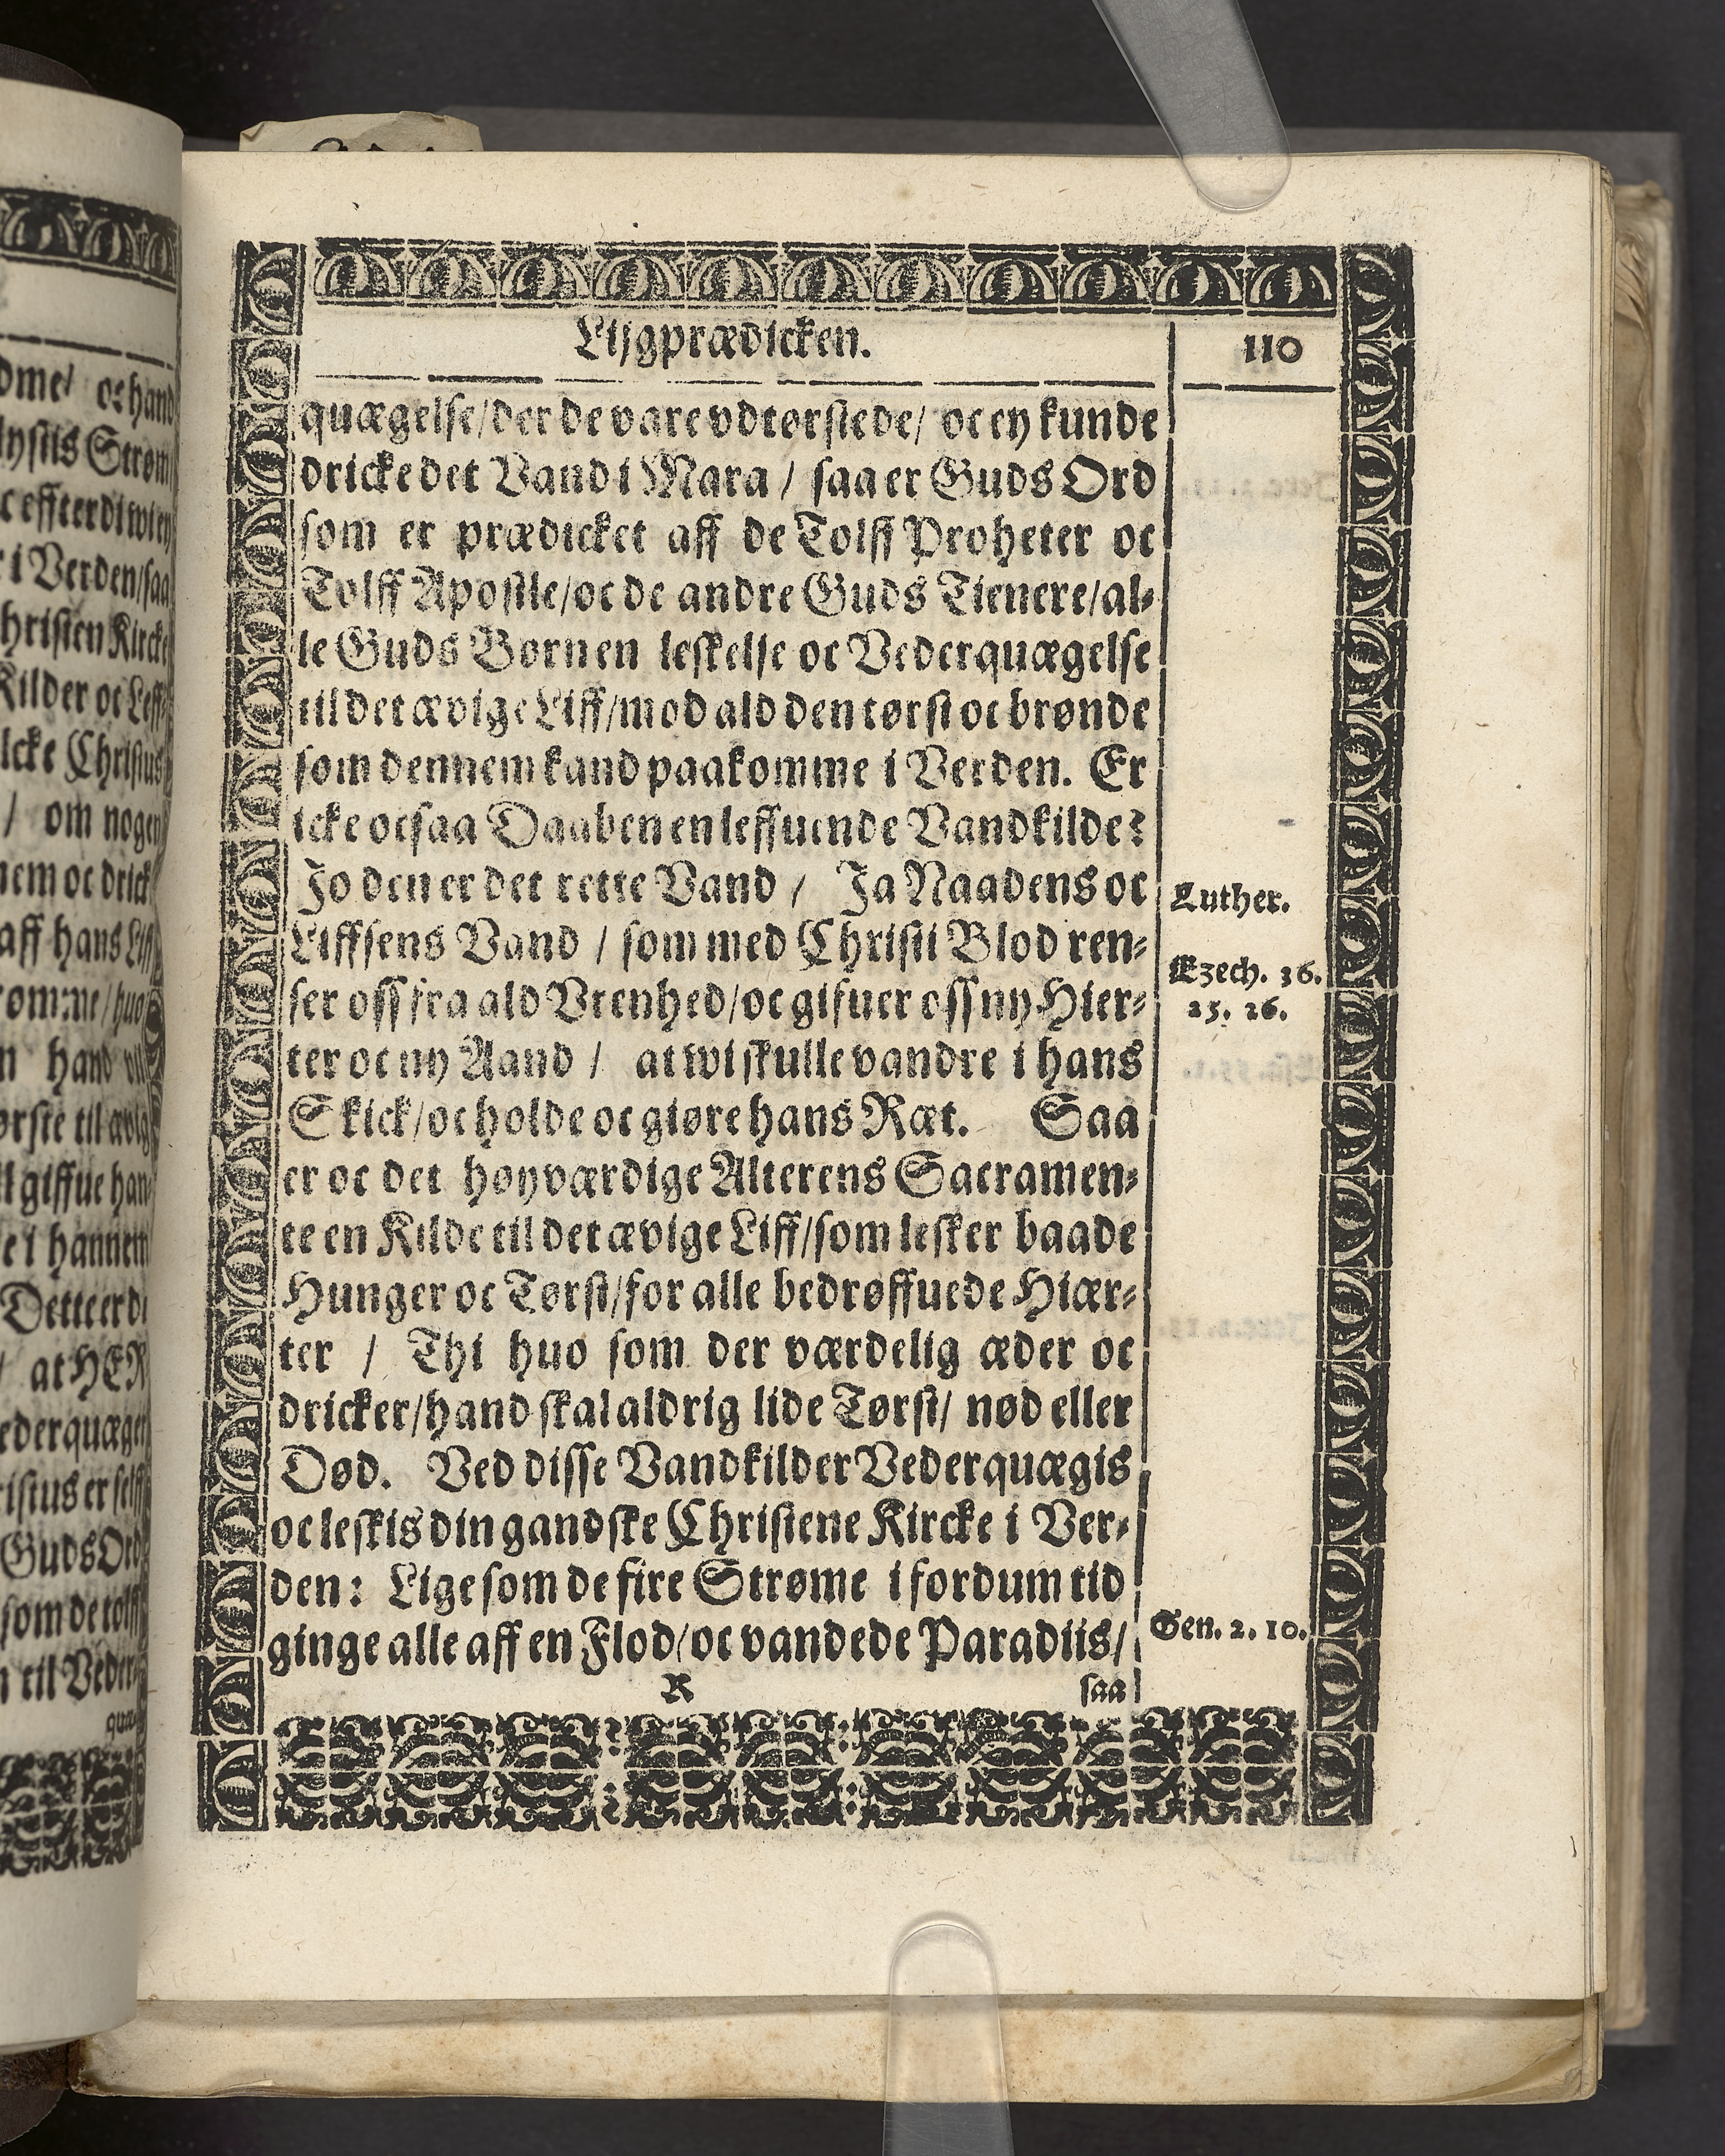 Lijgprædicken.
110
quægelse/der de vare vdtørstede/ oc ey kunde
dricke det Vand i Mara / saa er Guds Ord
som er prædicket aff de Tolff Proheter oc
Tolff Apostle/oc de andre Guds Tienere/al-
le Guds Børn en leskelse oc Vederquægelse
til det ævige Liff/mod ald den tørst oc brønde
som dennem kand paakomme i Verden. Er
icke ocsaa Daaben en leffuende Vandkilde?
Jo den er det rette Vand / Ja Naadens oc
Liffsens Vand / som med Christi Blod ren-
ser oss fra ald Vrenhed/oc gifuer oss ny Hier-
ter oc ny Aand / at wi skulle vandre i hans
Skick/oc holde oc giøre hans Ræt. Saa
er oc det høyværdige Alterens Sacramen-
te en Kilde til det ævige Liff/som lesker baade
Hunger oc Tørst/for alle bedrøffuede Hiær-
ter / Thi huo som der værdelig æder oc
dricker/hand skal aldrig lide Tørst/ nød eller
Død. Ved disse Vandkilder Vederquægis
oc leskis din gandske Christene Kircke i Ver-
den: Lige som de fire Strøme i fordum tid
ginge alle aff en Flod/oc vandede Paradiis/
R
saa
Luther.
Ezech. 36.
25. 26.
Gen. 2. 10.